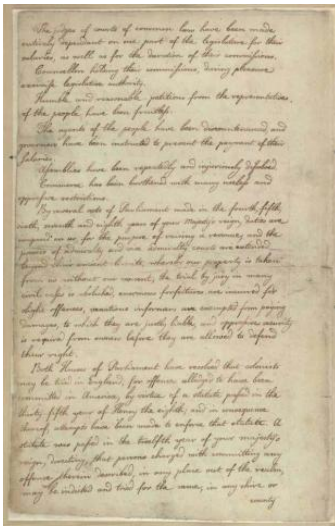 The judges of courts of common law have been made
entirely dependant on one part of the legislature for their
salaries, as well as for the duration of their commissions.
Councellors holding their commissions, during pleasure
exercise legislative authority.
Humble and reasonable petitions from the representatives
of the people have been fruitless.
The agents of the people have been discountenanced and
governors have been instructed to prevent the payment of their
salaries.
Assemblies have been repeatedly and injuriously dissolved
Commerce has been burthened with many useless and
oppressive restrictions.
By several acts of Parliament made in the fourth, fifth,
sixth, seventh and eighth years of your Majestys reign, duties are
imposed on us for the purpose of raising a revenue, and the
powers of admiralty and vice admiralty courts are extended
beyond their ancient limits, whereby our property is taken
from us without our consent, the trial by jury in many
civil cases is abolished, enormous forfeitures are incurred for
slight offences, vexatious informers are exempted from paying
damages, to which they are justly liable, and oppressive security
is required from owners before they are allowed to defend
their right.
Both Houses of Parliament have resolved that colonists
may be tried in England, for offences alledged to have been
committed in America, by virtue of a statute passed in the
thirty fifth year of Henry the eighth; and in consequence
thereof, attempts have been made to enforce that statute. A
statute was passed in the twelfth year of your majesty's
reign, directing, that persons charged with committing any
offence therein described, in any place out of the realm,
may be indicted and tried for the same, in any shire or
county